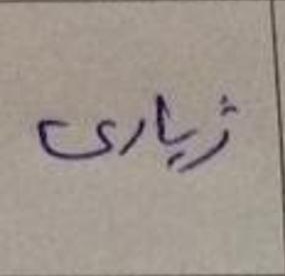 ژیاری